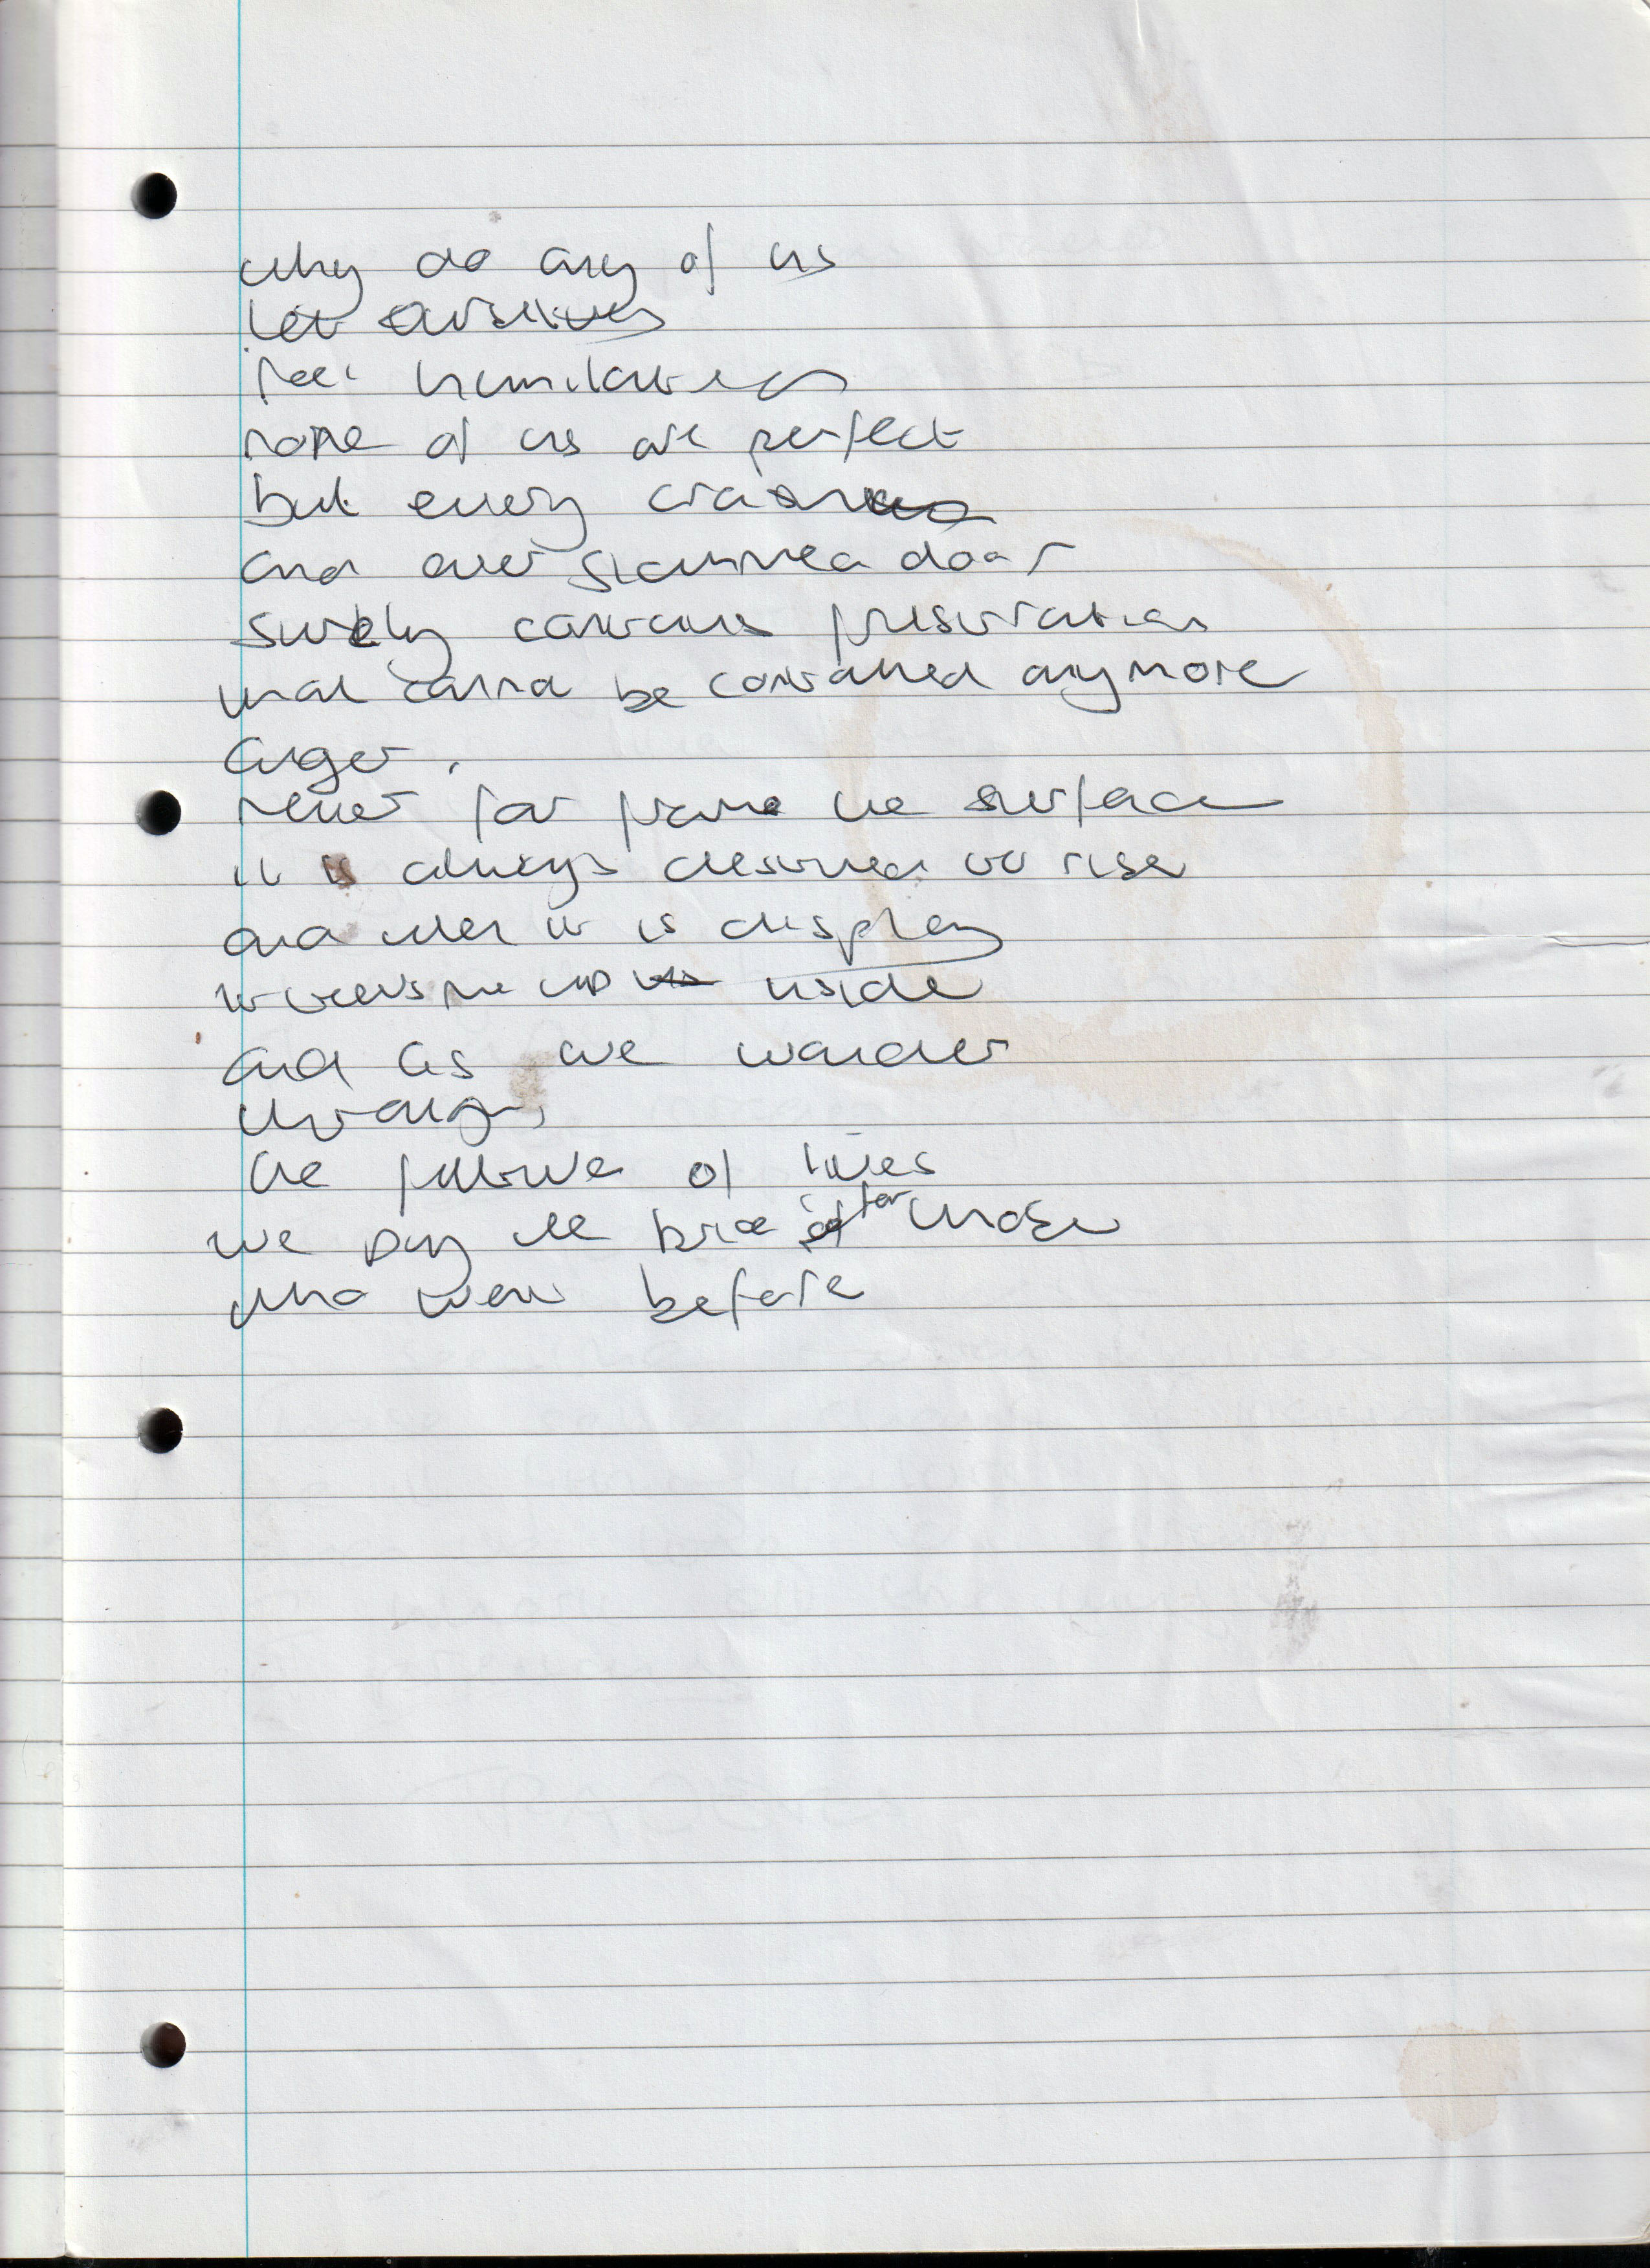 why do any of us
let ourselves
feel humiliated
none of us are perfect
but every
and ever slammed door
surely contains frustration
that cannot be controlled anymore
anger.
never far from the surface
it is always destined to rise
and when it is display
it us up inside
and as we wander
through,
the future of lives
we pay the price for those
who went before